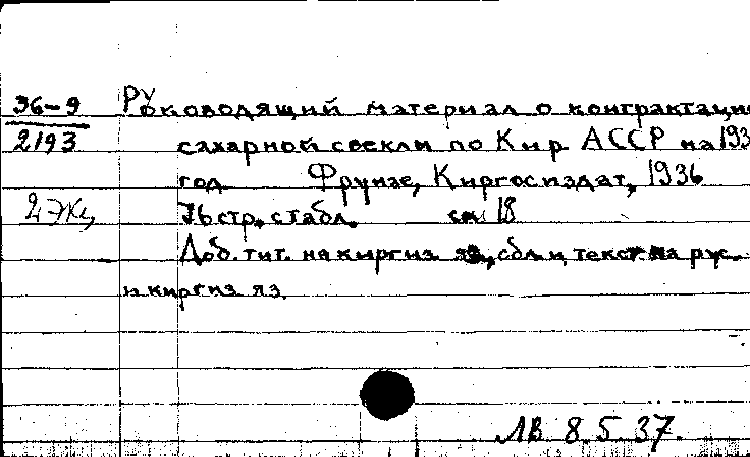 36-9 Руководящий материал о контрактации
2193 сахарной свеклы по Кир. АССР на 193
год. Фрунзе, Киргосиздат, 1936
2 экз. 76 стр. с табл. см 18
Доб. тит. на киргиз. яз., обл. и текст на рус.
и киргиз. яз.
ЛВ. 8.5.37.